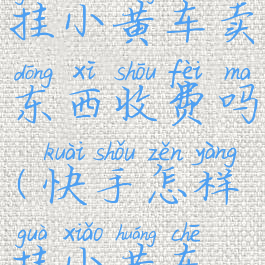 挂小黄车卖
dōng xī shōu fèi ma
东西收费吗
kuài shǒu zěn yàng
(快手怎样
guà xiǎo huáng chē
挂小黄车